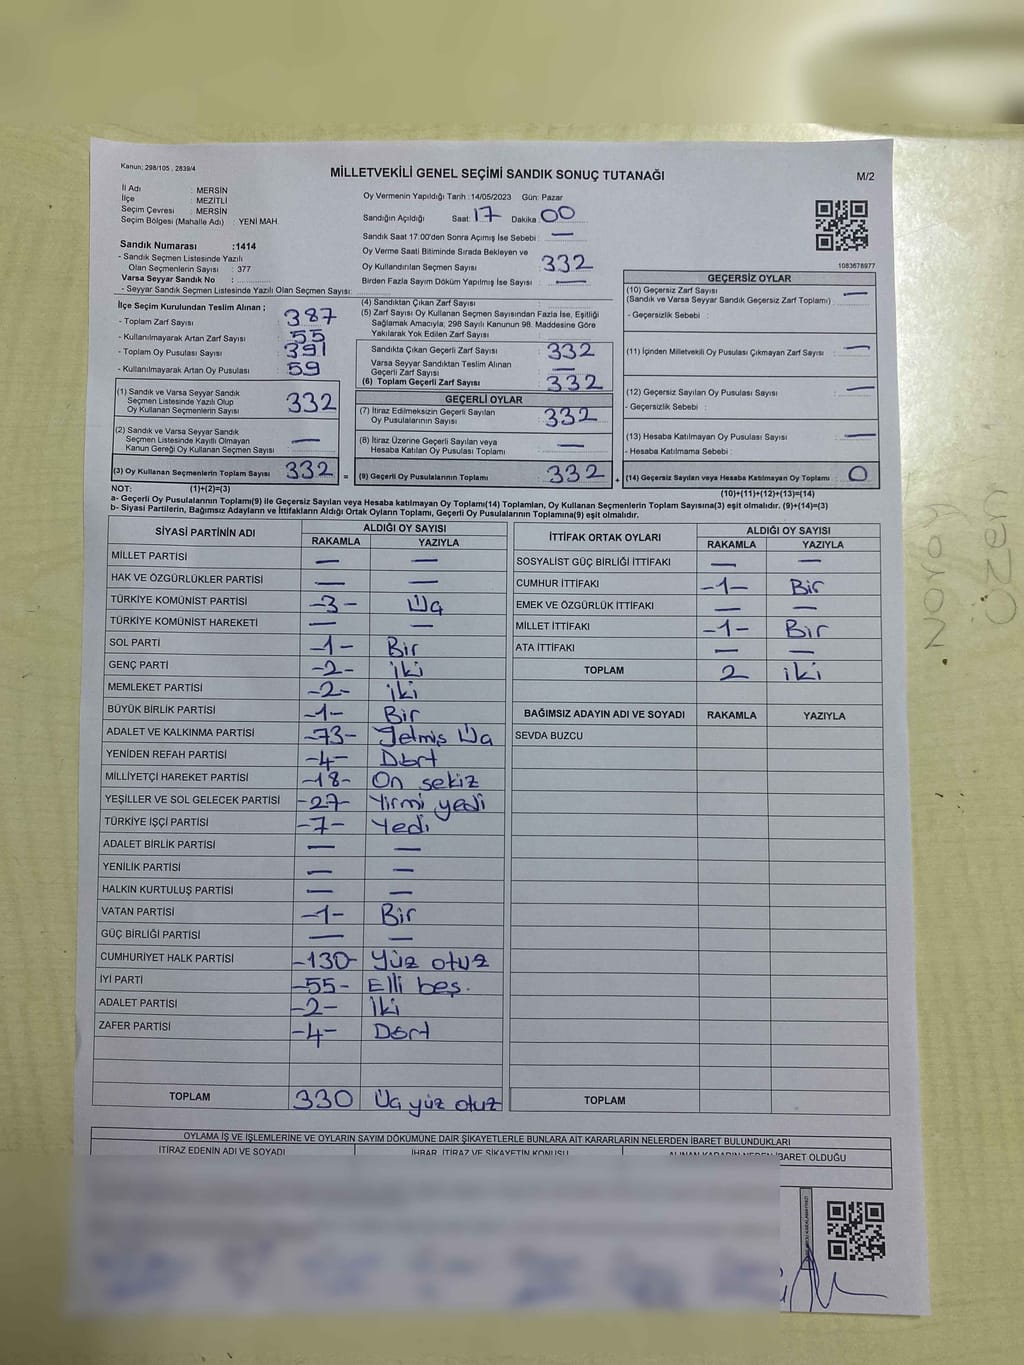 Kanun; 298/105 , 2839/4
MİLLETVEKİLİ GENEL SEÇİMİ SANDIK SONUÇ TUTANAĞI
M/2
İl Adı : MERSİN
İlçe : MEZİTLİ
Seçim Çevresi : MERSİN
Seçim Bölgesi (Mahalle Adı) : YENİ MAH.
Oy Vermenin Yapıldığı Tarih : 14/05/2023 Gün: Pazar
Sandığın Açıldığı Saat: 17 Dakika: 00
Sandık Saat 17:00'den Sonra Açımış İse Sebebi : —
Oy Verme Saati Bitiminde Sırada Bekleyen ve
Oy Kullandırılan Seçmen Sayısı : 332
Birden Fazla Sayım Döküm Yapılmış İse Sayısı : —
Sandık Numarası :1414
- Sandık Seçmen Listesinde Yazılı
Olan Seçmenlerin Sayısı : 377
Varsa Seyyar Sandık No :
- Seyyar Sandık Seçmen Listesinde Yazılı Olan Seçmen Sayısı:
1083678977
İlçe Seçim Kurulundan Teslim Alınan ;
- Toplam Zarf Sayısı : 387
- Kullanılmayarak Artan Zarf Sayısı : 55
- Toplam Oy Pusulası Sayısı : 391
- Kullanılmayarak Artan Oy Pusulası : 59
(1) Sandık ve Varsa Seyyar Sandık
Seçmen Listesinde Yazılı Olup
Oy Kullanan Seçmenlerin Sayısı : 332
(2) Sandık ve Varsa Seyyar Sandık
Seçmen Listesinde Kayıtlı Olmayan
Kanun Gereği Oy Kullanan Seçmen Sayısı : —
(3) Oy Kullanan Seçmenlerin Toplam Sayısı : 332 =
(4) Sandıktan Çıkan Zarf Sayısı :
(5) Zarf Sayısı Oy Kullanan Seçmen Sayısından Fazla İse, Eşitliği
Sağlamak Amacıyla; 298 Sayılı Kanunun 98. Maddesine Göre
Yakılarak Yok Edilen Zarf Sayısı :
Sandıkta Çıkan Geçerli Zarf Sayısı : 332
Varsa Seyyar Sandıktan Teslim Alınan
Geçerli Zarf Sayısı : —
(6) Toplam Geçerli Zarf Sayısı : 332
GEÇERLİ OYLAR
(7) İtiraz Edilmeksizin Geçerli Sayılan
Oy Pusulasının Sayısı : 332
(8) İtiraz Üzerine Geçerli Sayılan veya
Hesaba Katılan Oy Pusulası Toplamı : —
(9) Geçerli Oy Pusulalarının Toplamı : 332 +
GEÇERSİZ OYLAR
(10) Geçersiz Zarf Sayısı : —
(Sandık ve Varsa Seyyar Sandık Geçersiz Zarf Toplamı)
- Geçersizlik Sebebi :
(11) İçinden Milletvekili Oy Pusulası Çıkmayan Zarf Sayısı : —
(12) Geçersiz Sayılan Oy Pusulası Sayısı : —
- Geçersizlik Sebebi :
(13) Hesaba Katılmayan Oy Pusulası Sayısı : —
- Hesaba Katılmama Sebebi :
(14) Geçersiz Sayılan veya Hesaba Katılmayan Oy Toplamı : 0
NOT: (1)+(2)=(3)
(10)+(11)+(12)+(13)=(14)
a- Geçerli Oy Pusulalarının Toplamı(9) ile Geçersiz Sayılan veya Hesaba katılmayan Oy Toplam(14) Toplamları, Oy Kullanan Seçmenlerin Toplam Sayısına(3) eşit olmalıdır. (9)+(14)=(3)
b- Siyasi Partilerin, Bağımsız Adayların ve İttifakların Aldığı Ortak Oyların Toplamı, Geçerli Oy Pusulalarının Toplamına(9) eşit olmalıdır.
SİYASİ PARTİNİN ADI ALDIĞI OY SAYISI
RAKAMLA YAZIYLA
MİLLET PARTİSİ — —
HAK VE ÖZGÜRLÜKLER PARTİSİ — —
TÜRKİYE KOMÜNİST PARTİSİ -3- Üç
TÜRKİYE KOMÜNİST HAREKETİ — —
SOL PARTİ -1- Bir
GENÇ PARTİ -2- iki
MEMLEKET PARTİSİ -2- iki
BÜYÜK BİRLİK PARTİSİ -1- Bir
ADALET VE KALKINMA PARTİSİ -73- Yetmiş Üç
YENİDEN REFAH PARTİSİ -4- Dört
MİLLİYETÇİ HAREKET PARTİSİ -18- On sekiz
YEŞİLLER VE SOL GELECEK PARTİSİ -27- Yirmi yedi
TÜRKİYE İŞÇİ PARTİSİ -7- Yedi
ADALET BİRLİK PARTİSİ — —
YENİLİK PARTİSİ — —
HALKIN KURTULUŞ PARTİSİ — —
VATAN PARTİSİ -1- Bir
GÜÇ BİRLİĞİ PARTİSİ — —
CUMHURİYET HALK PARTİSİ -130- Yüz otuz
İYİ PARTİ -55- Elli beş.
ADALET PARTİSİ -2- İki
ZAFER PARTİSİ -4- Dört
TOPLAM 330 Üç yüz otuz
İTTİFAK ORTAK OYLARI ALDIĞI OY SAYISI
RAKAMLA YAZIYLA
SOSYALİST GÜÇ BİRLİĞİ İTTİFAKI — —
CUMHUR İTTİFAKI -1- Bir
EMEK VE ÖZGÜRLÜK İTTİFAKI — —
MİLLET İTTİFAKI -1- Bir
ATA İTTİFAKI — —
TOPLAM 2 iki
BAĞIMSIZ ADAYIN ADI VE SOYADI RAKAMLA YAZIYLA
SEVDA BUZCU
TOPLAM
OYLAMA İŞ VE İŞLEMLERİNE VE OYLARIN SAYIM DÖKÜMÜNE DAİR ŞİKAYETLERLE BUNLARA AİT KARARLARIN NELERDEN İBARET BULUNDUKLARI
İTİRAZ EDENİN ADI VE SOYADI İHBAR, İTİRAZ VE ŞİKAYETİN KONUSU ALINAN KARARIN NEDEN İBARET OLDUĞU